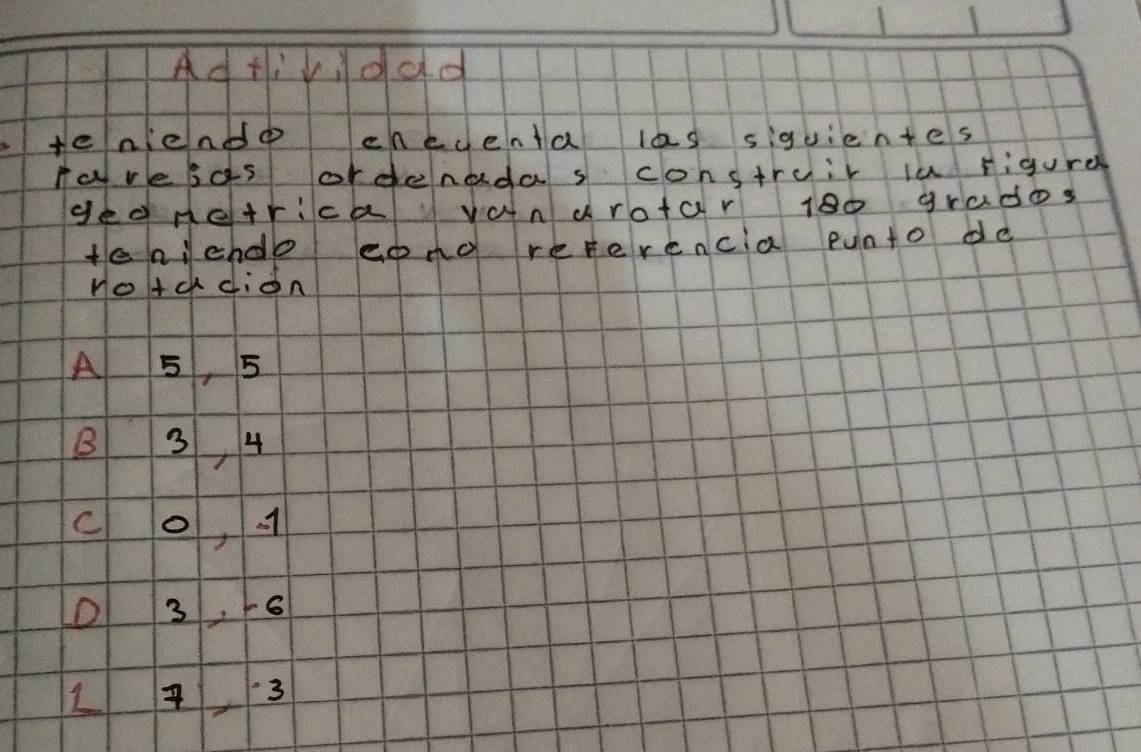 Actividad
teniendo encuenta las siguientes
parejas ordenadas construir la figura
geometrica van a rotar 180 grados
teniendo como referencia punto de
rotación
A 5, 5
B 3, 4
C 0, -1
D 3, -6
L 7, -3